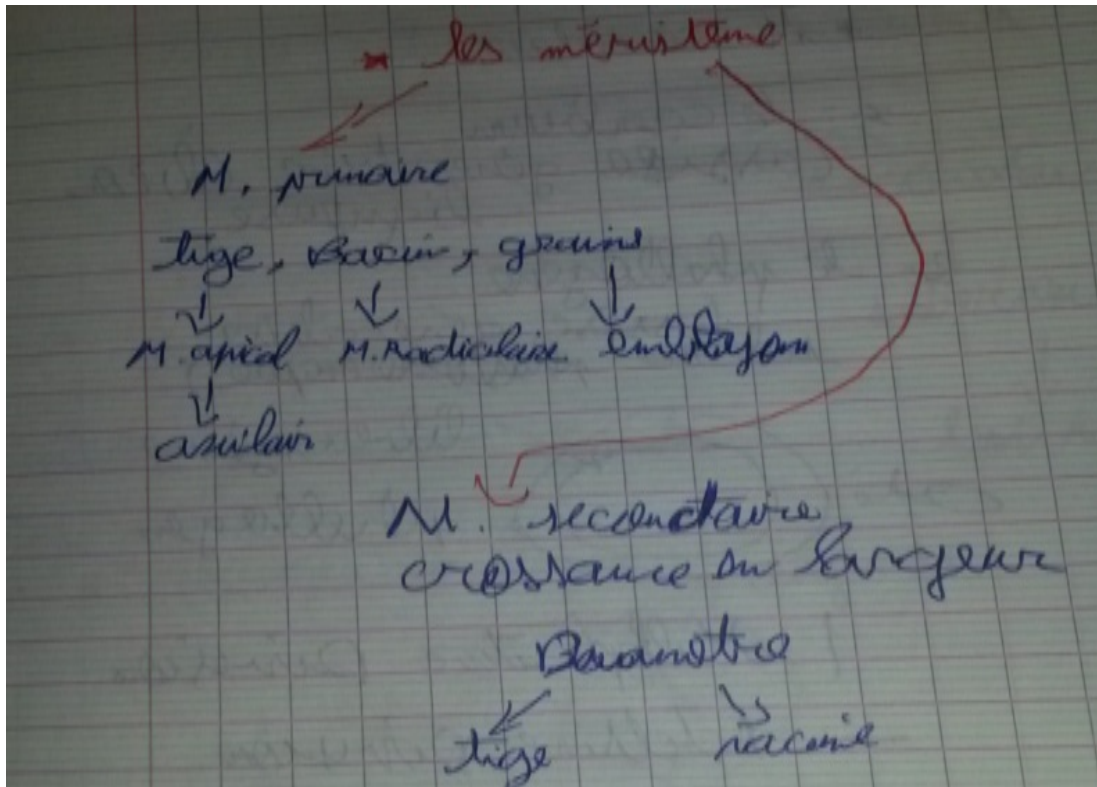 les méristème
M. primaire
tige, Racin, grains
M. apical M. Radiculaire embrayon
axilair
M. secondaire
croissance en largeur
tige racine